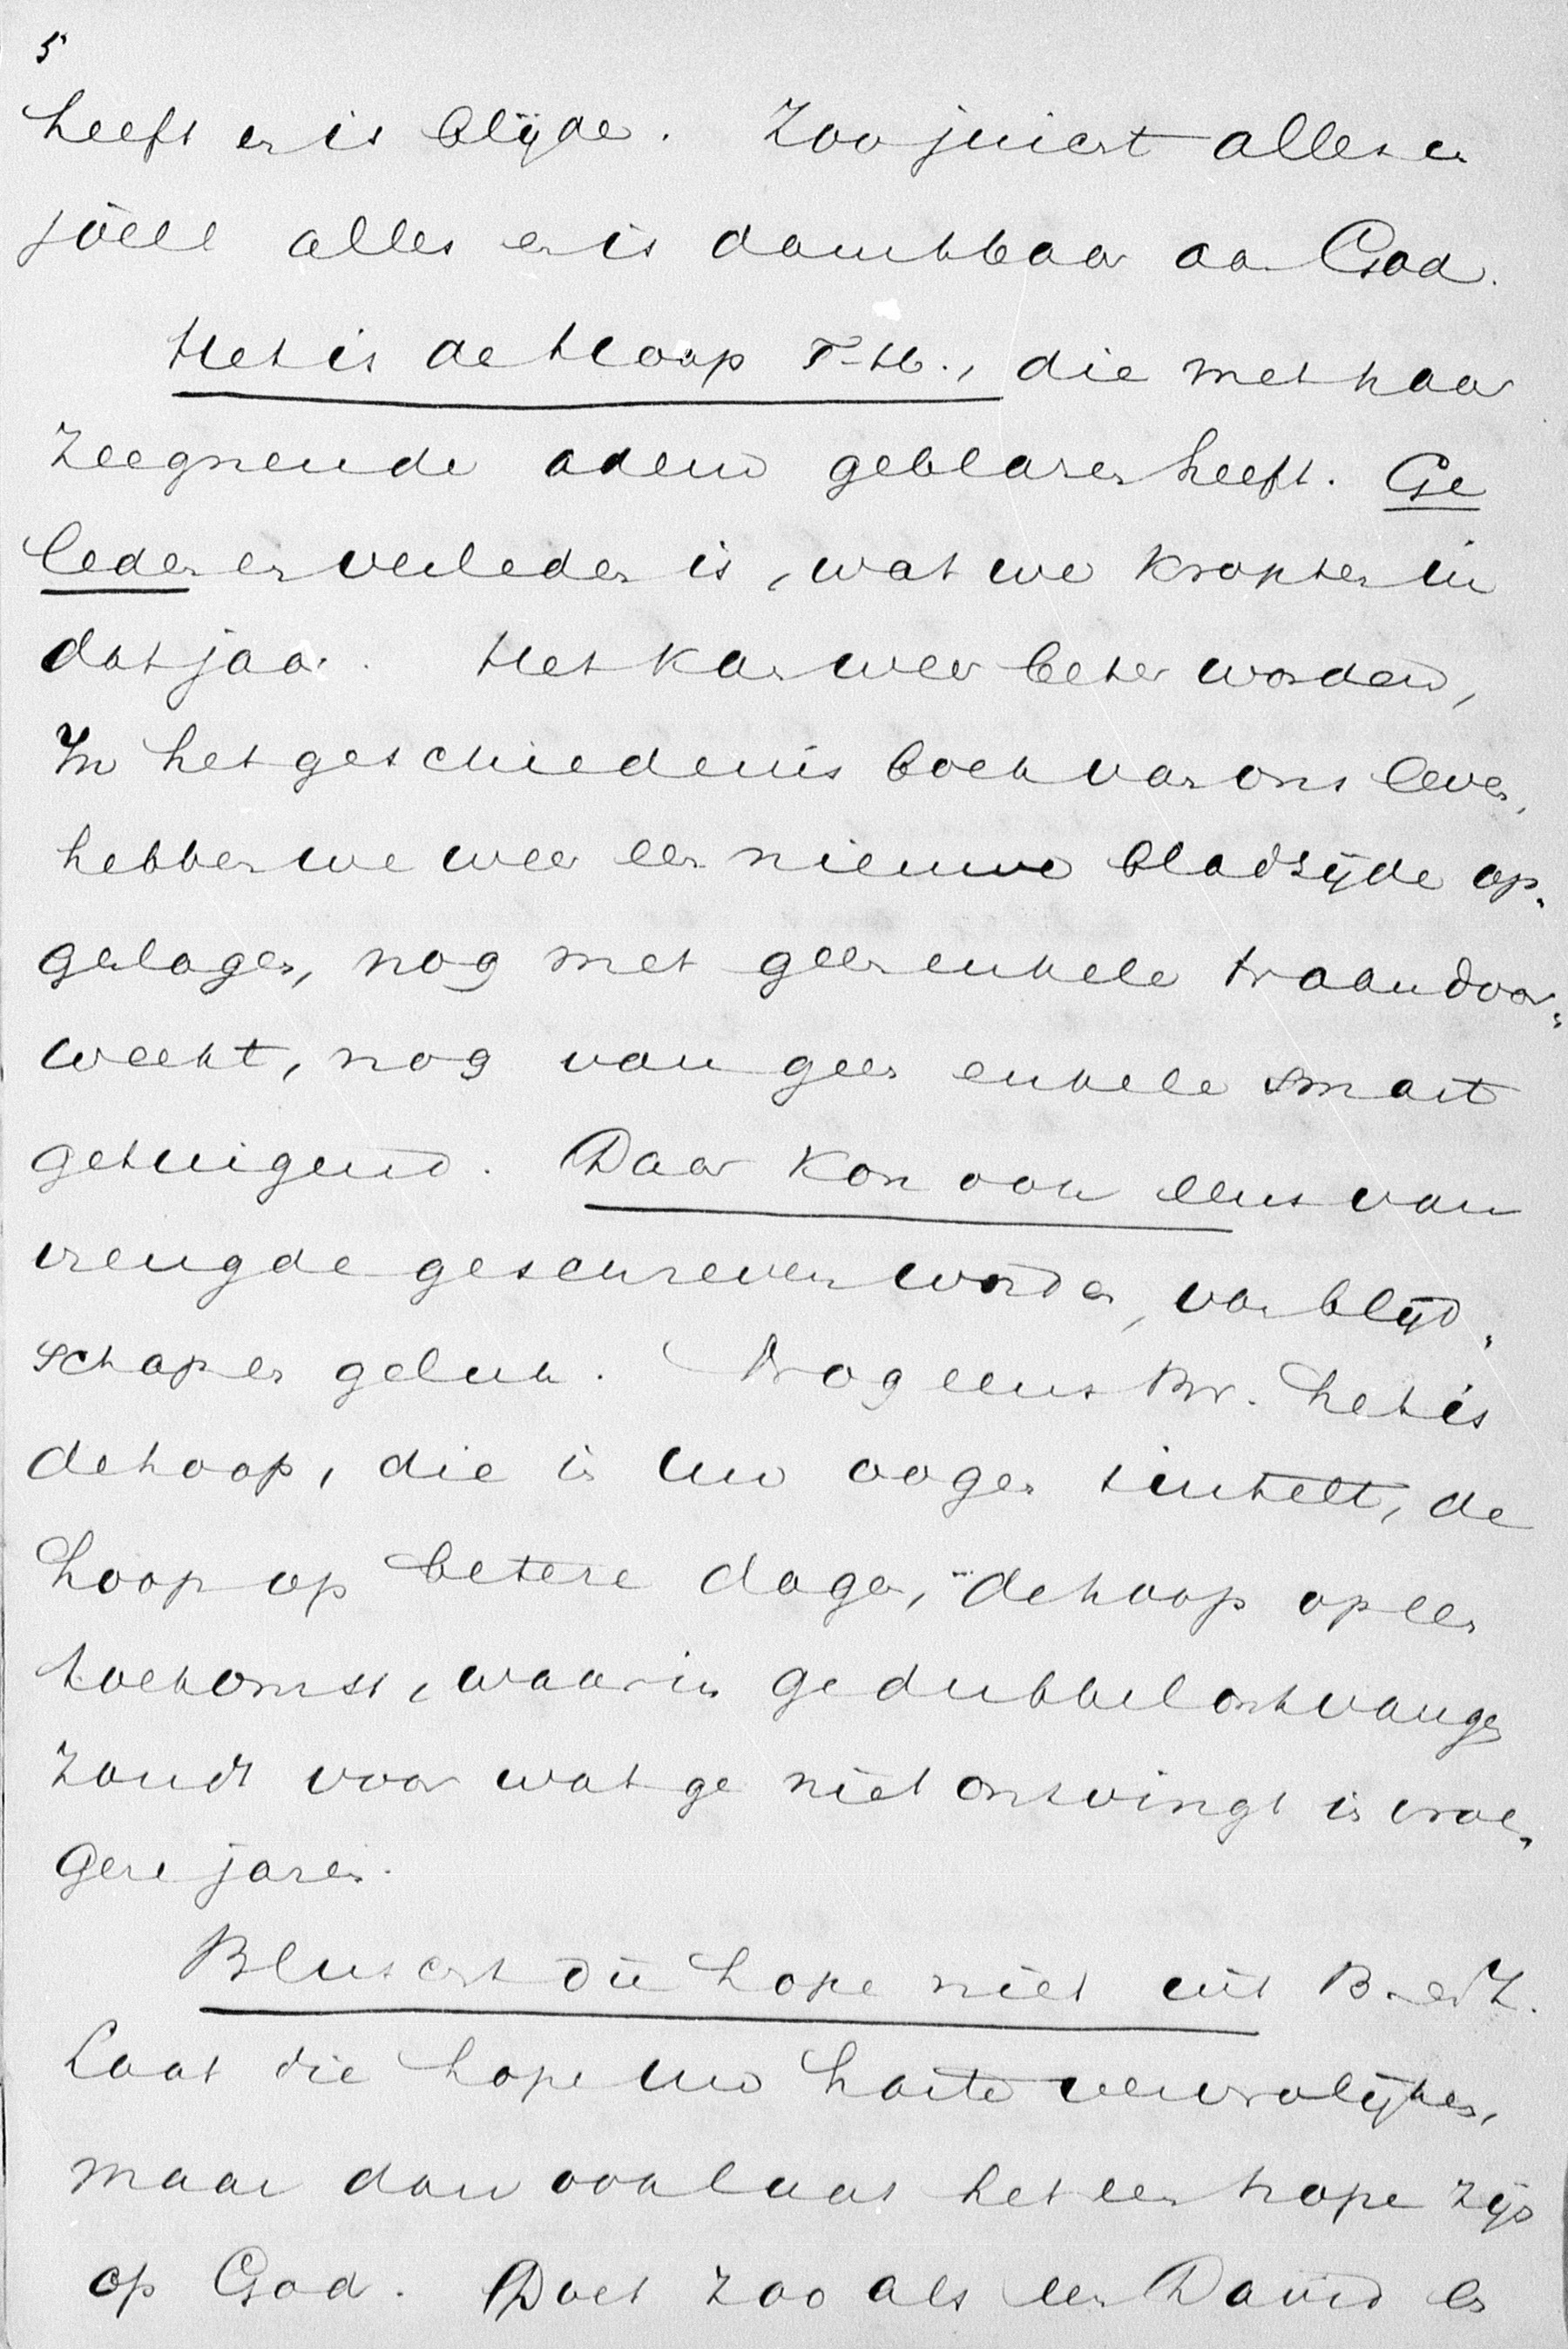 5
heeft en is blijde. Zoo juicht alles en
joelt alles en is dankbaar aan God.
Het is de Hoop T.H., die met haar
zeegnende adem geblazen heeft. Ge
leden en verleden is, wat we kropten in
dat jaar. Het kan weer beter worden,
In het geschiedenis boek van ons leven,
hebben we weer een nieuwe bladzijde op-
geslagen, nog met geen enkele traan door-
weekt, nog van geen enkele smart
getuigend. Daar kon ook eens van
vreugde geschreven worden, van blijd-
schap en geluk. Nog eens Br. het is
de hoop, die in uw oogen tintelt, de
hoop op betere dagen, de hoop op een
toekomst, waarin ge dubbel ontvangen
zoudt voor wat ge niet ontvingt in vroe-
gere jaren.
Bluscht die hope niet uit B. en Z.
Laat die hope uw harte vervrolijken,
maar dan ook laat het een hope zijn
op God. Doet zoo als een David en